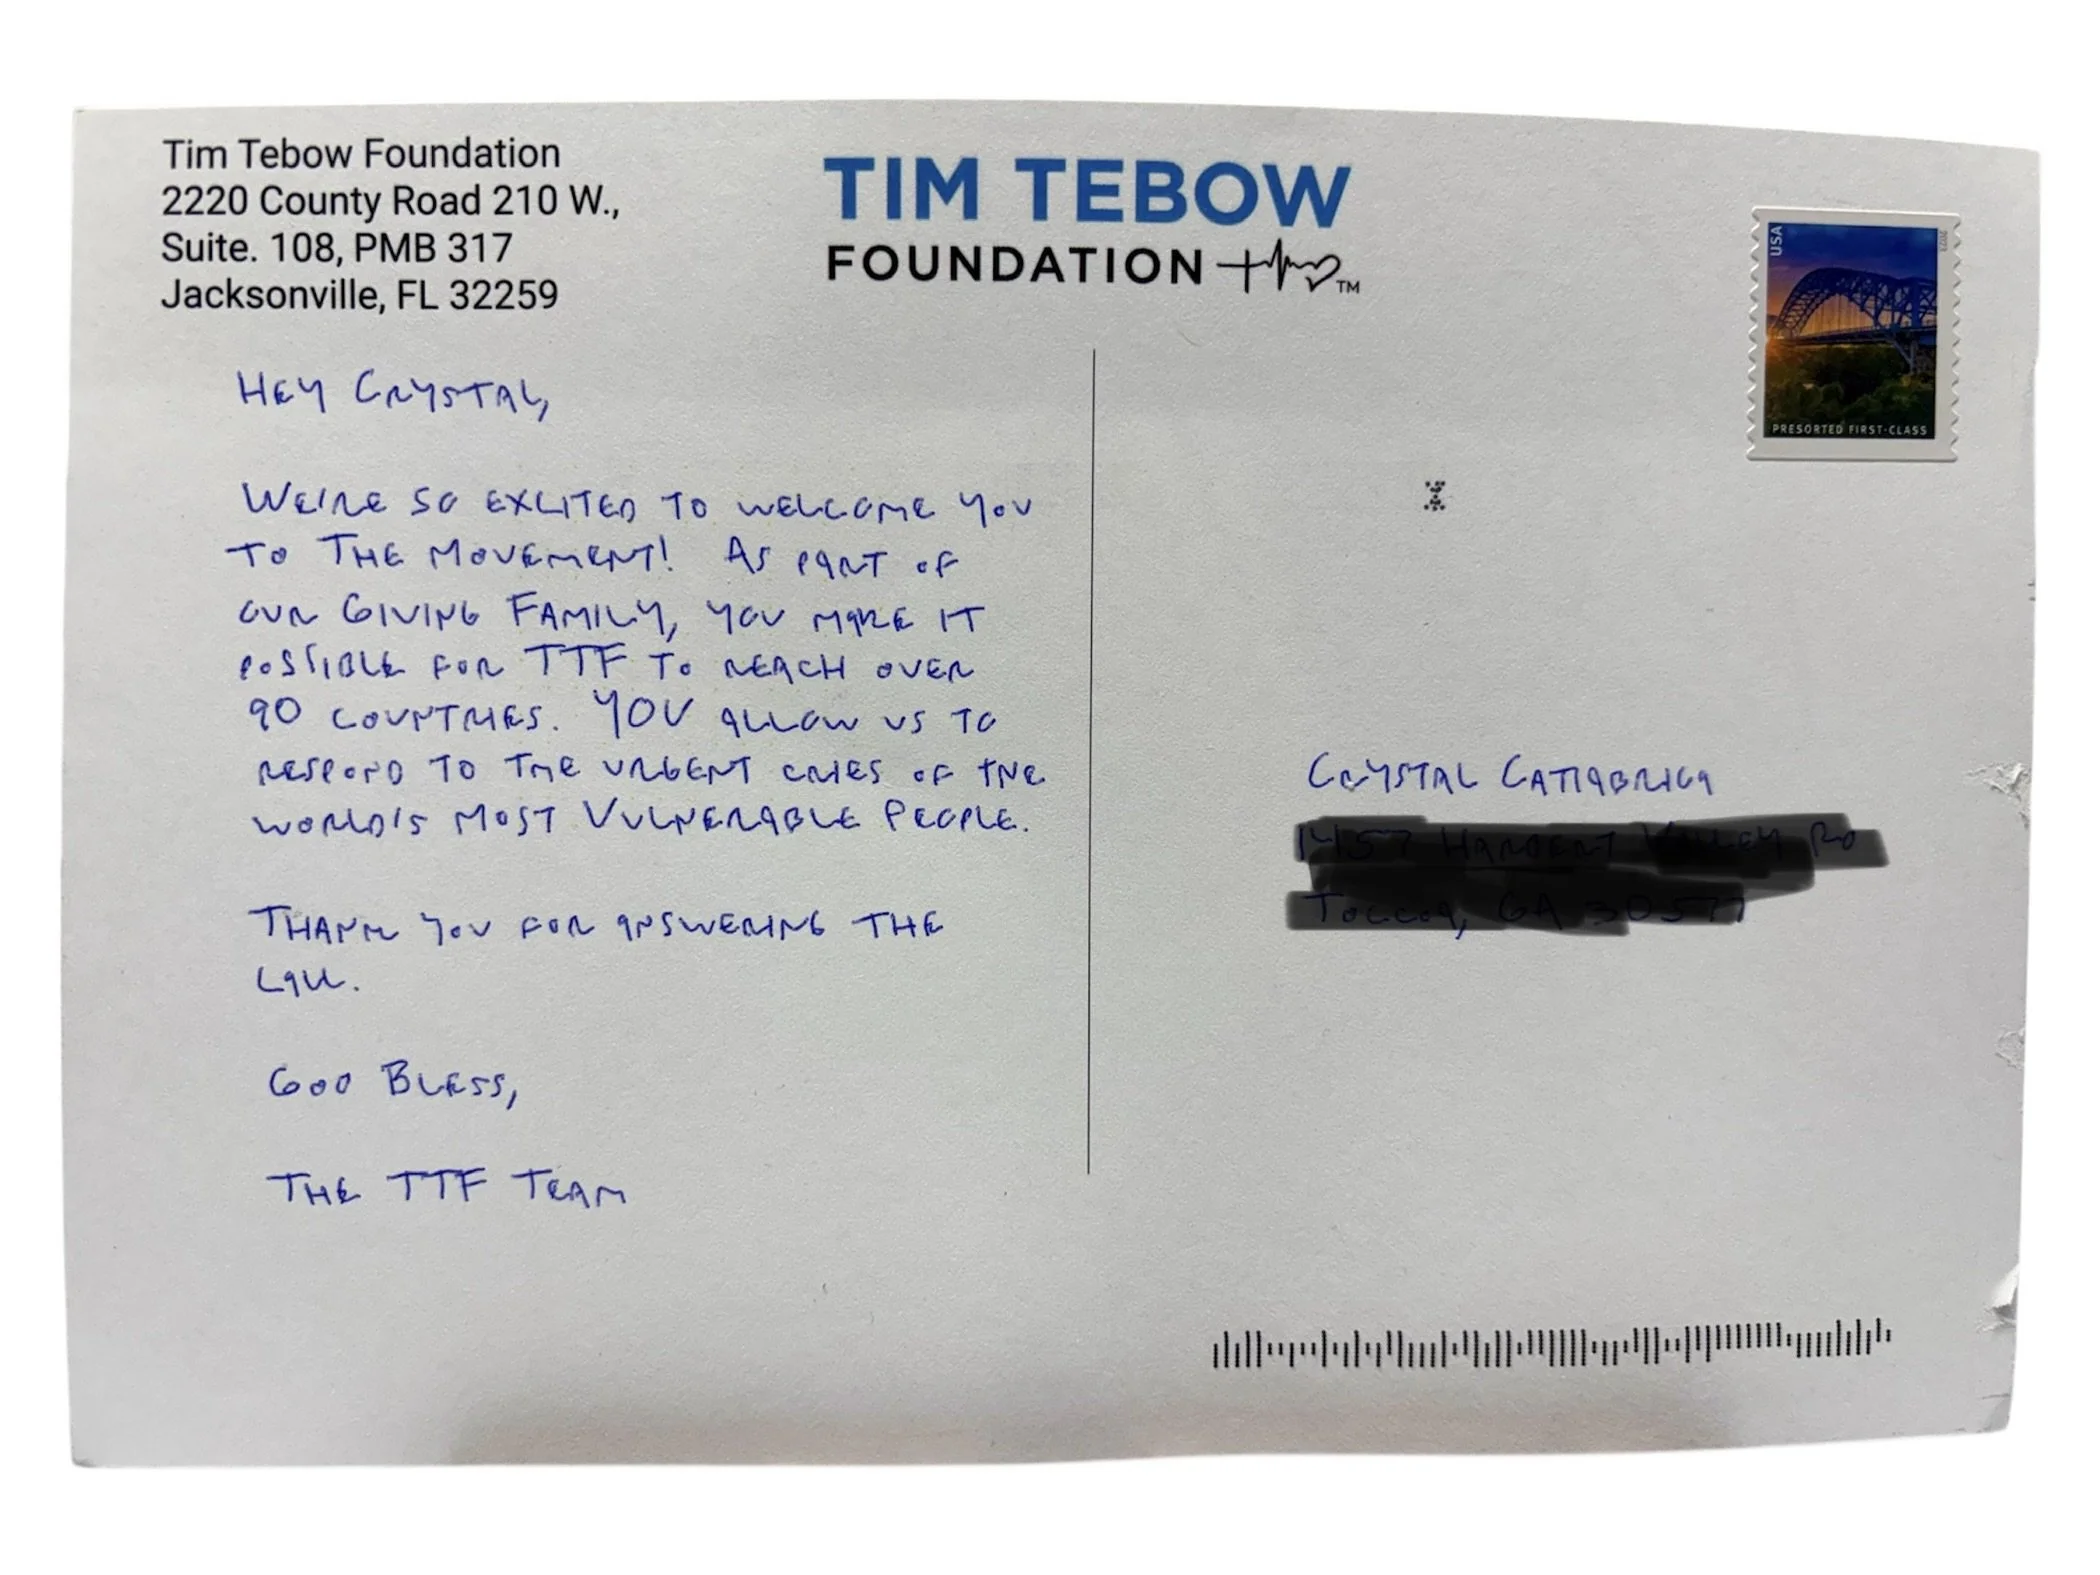 Tim Tebow Foundation
2220 County Road 210 W.,
Suite. 108, PMB 317
Jacksonville, FL 32259
TIM TEBOW
FOUNDATION ™
USA
PRESORTED FIRST-CLASS
HEY CRYSTAL,
WE'RE SO EXCITED TO WELCOME YOU
TO THE MOVEMENT! AS PART OF
OUR GIVING FAMILY, YOU MAKE IT
POSSIBLE FOR TTF TO REACH OVER
90 COUNTRIES. YOU ALLOW US TO
RESPOND TO THE URGENT CRIES OF THE
WORLD'S MOST VULNERABLE PEOPLE.
THANK YOU FOR ANSWERING THE
CALL.
GOD BLESS,
THE TTF TEAM
CRYSTAL CATTABRIGA